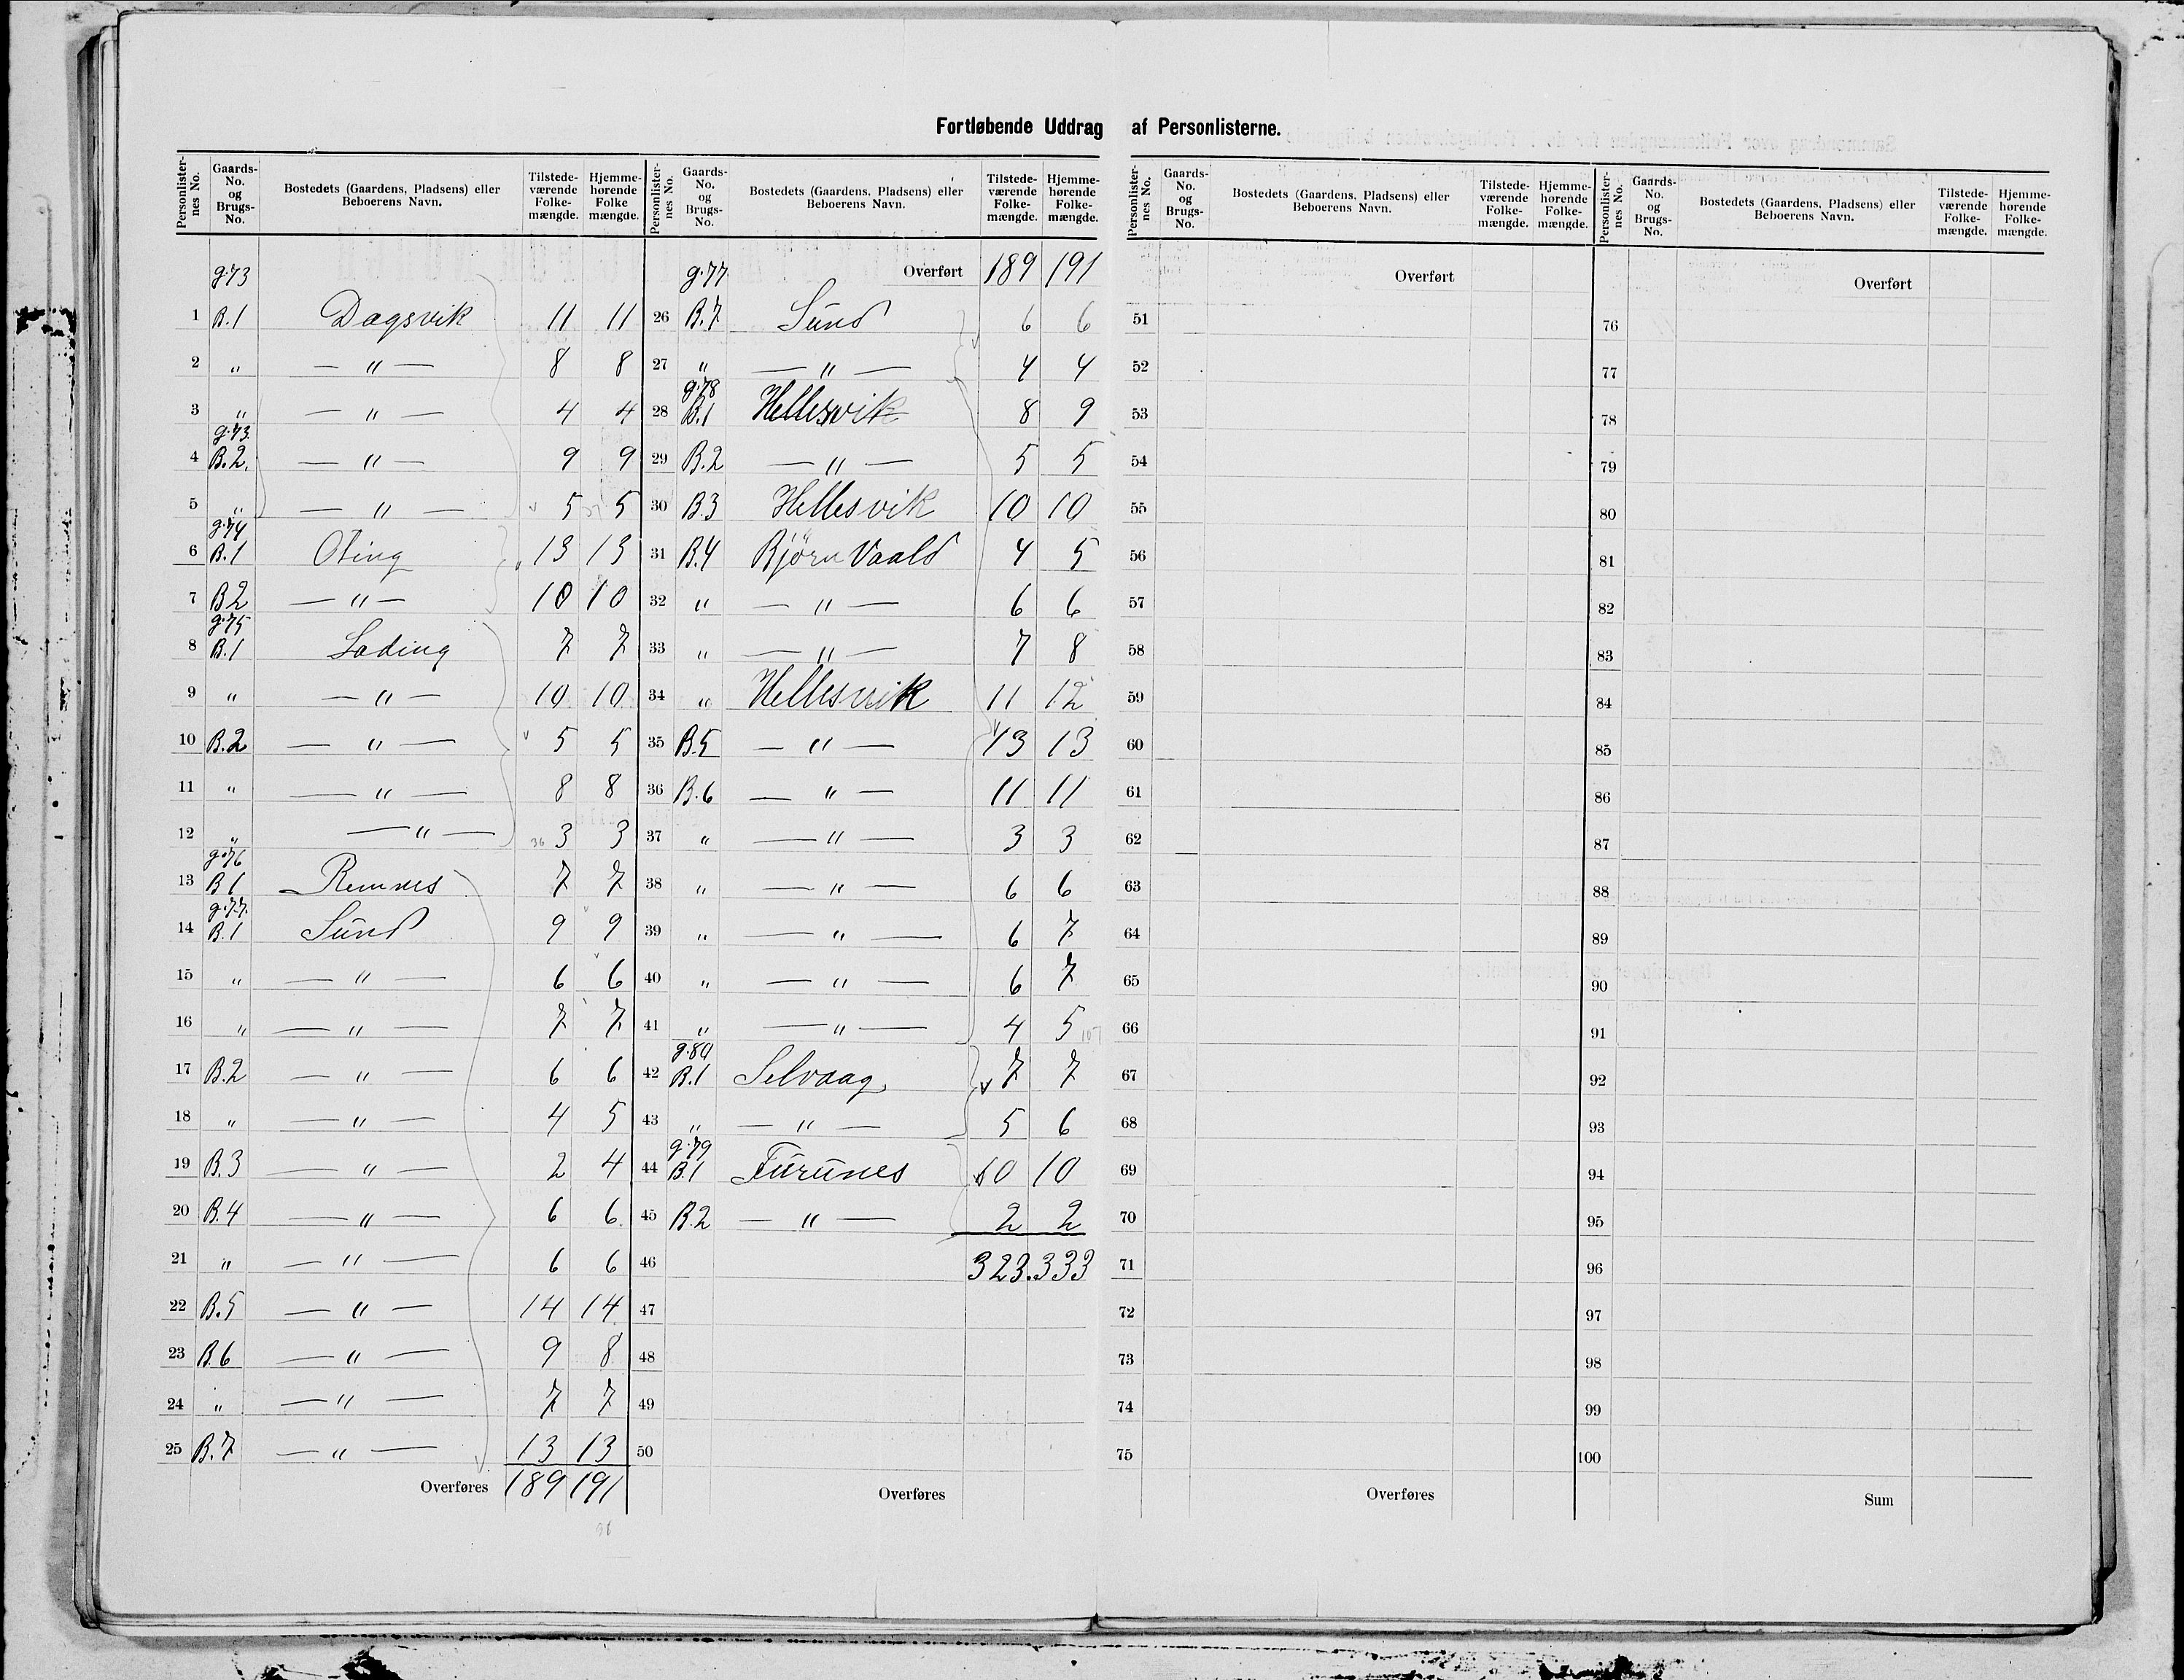 Fortløbende Uddrag af Personlisterne.
Personlisternes No. Gaards-No. og Brugs-No. Bostedets (Gaardens, Pladsens) eller Beboerens Navn. Tilstedeværende Folkemængde. Hjemmehørende Folkemængde.
g.73
1 B.1 Dagsvik 11 11
2 " — " — 8 8
3 " — " — 4 4
g.73.
4 B.2. — " — 9 9
5 " — " — 5 5
g.74
6 B.1 Oting 13 13
7 B2 — " — 10 10
g.75
8 B.1 Lading 7 7
9 " — " — 10 10
10 B.2 — " — 5 5
11 " — " — 8 8
12 " — " — 36 3 3
g.76
13 B1 Remnes 7 7
g.77.
14 B.1 Sund 9 9
15 " — " — 6 6
16 " — " — 7 7
17 B.2 — " — 6 6
18 " — " — 4 5
19 B.3 — " — 2 4
20 B.4 — " — 6 6
21 " — " — 6 6
22 B.5 — " — 14 14
23 B.6 — " — 9 8
24 " — " — 7 7
25 B.7 — " — 13 13
Overføres 189 191
98
Personlisternes No. Gaards-No. og Brugs-No. Bostedets (Gaardens, Pladsens) eller Beboerens Navn. Tilstedeværende Folkemængde. Hjemmehørende Folkemængde.
g.77 Overført 189 191
26 B.7 Sund 6 6
27 " — " — 4 4
g.78
28 B.1 Hellesvik 8 9
29 B.2 — " — 5 5
30 B.3 Hellesvik 10 10
31 B.4 Björn Vaald 4 5
32 " — " — 6 6
33 " — " — 7 8
34 " Hellesvik 11 12
35 B.5 — " — 13 13
36 B.6 — " — 11 11
37 " — " — 3 3
38 " — " — 6 6
39 " — " — 6 7
40 " — " — 6 7
41 " — " — 4 5 107
g.80
42 B.1 Selvaag. 7 7
43 " — " — 5 6
g.79
44 B.1 Furunes 10 10
45 B.2 — " — 2 2
46 323. 333
47
48
49
50
Overføres
Personlisternes No. Gaards-No. og Brugs-No. Bostedets (Gaardens, Pladsens) eller Beboerens Navn. Tilstedeværende Folkemængde. Hjemmehørende Folkemængde.
Overført
51
52
53
54
55
56
57
58
59
60
61
62
63
64
65
66
67
68
69
70
71
72
73
74
75
Overføres
Personlisternes No. Gaards-No. og Brugs-No. Bostedets (Gaardens, Pladsens) eller Beboerens Navn. Tilstedeværende Folkemængde. Hjemmehørende Folkemængde.
Overført
76
77
78
79
80
81
82
83
84
85
86
87
88
89
90
91
92
93
94
95
96
97
98
99
100
Sum